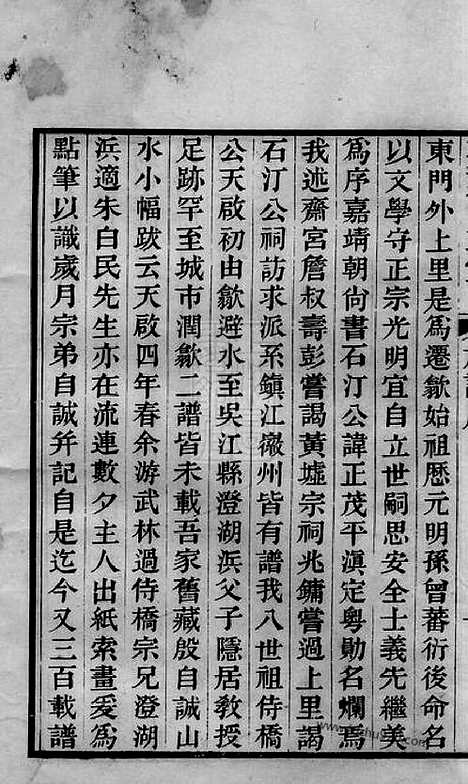 東門外上里是爲遷歙始祖歷元明孫曾蕃衍後命名
以文學守正宗光明宜自立世嗣思安全士義先繼美
爲序嘉靖朝尙書石汀公諱正茂平滇定粵勛名爛焉
我述齋宮詹叔壽彭嘗謁黃墟宗祠兆鏞嘗過上里謁
石汀公祠訪求派系鎮江徽州皆有譜我八世祖侍橋
公天啟初由歙避水至吳江縣澄湖浜父子隱居敎授
足跡罕至城市潤歙二譜皆未載吾家舊藏殷自誠山
水小幅跋云天啟四年春余游武林過侍橋宗兄澄湖
浜適朱白民先生亦在流連數夕主人出紙索畫爰爲
點筆以識歲月宗弟自誠并記自是迄今又三百載譜